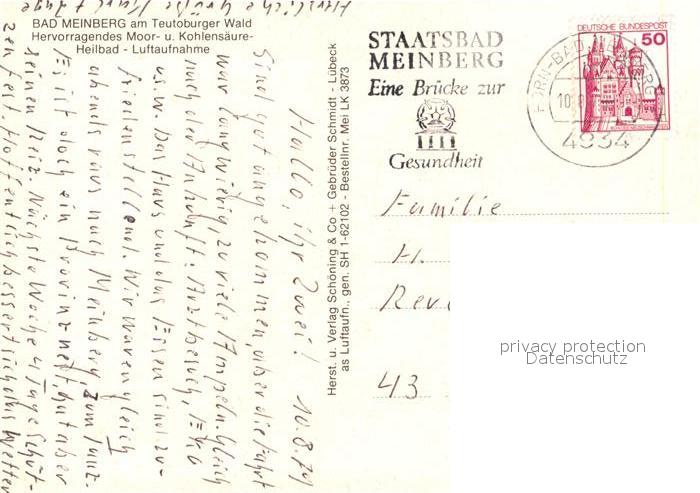 BAD MEINBERG am Teutoburger Wald
Hervorragendes Moor- u. Kohlensäure-
Heilbad - Luftaufnahme
Herst. u. Verlag Schöning & Co + Gebrüder Schmidt - Lübeck
as Luftaufn., gen. SH 1-62102 - Bestellnr. Mei LK 3873
STAATSBAD
MEINBERG
Eine Brücke zur
Gesundheit
DEUTSCHE BUNDESPOST
50
HORN-BAD MEINBERG
10.
4934
Hallo, ihr Zwei! 10.8.79
Sind gut angekommen, aber die Fahrt
war langwierig, zu viele Ampeln. Gleich
nach der Ankunft: Arztbesuch, EKG
usw. Das Haus und das Essen sind zu-
friedenstellend. Wir waren gleich
abends raus nach Meinberg zum Tanz.
Es ist doch ein Provinznest, hat aber
seinen Reiz. Nächste Woche 4 Tage Schüt-
zenfest. Hoffentlich bessert sich das Wetter
Herzliche Grüße
Familie
H.
43
privacy protection
Datenschutz